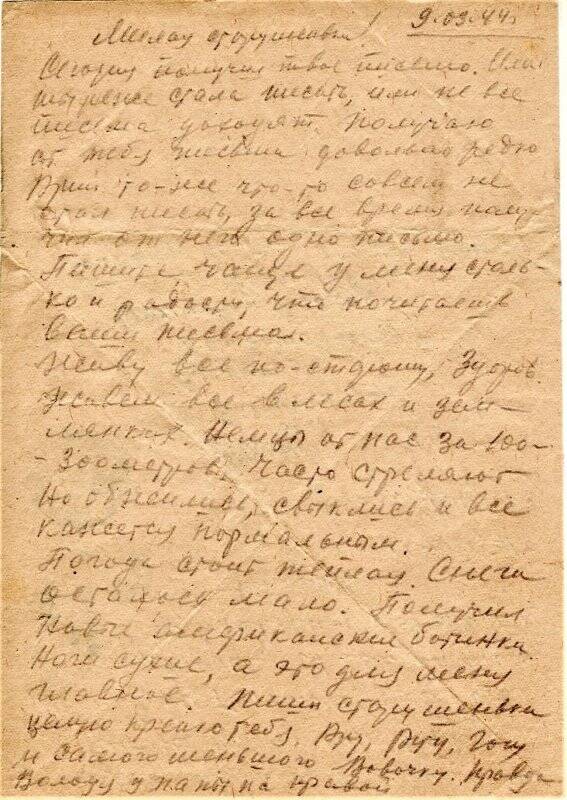 9.03.44.
Милая старушенька!
Сегодня получил твое письмо. Или
ты реже стала писать, или не все
письма доходят. Получаю
от тебя письма довольно редко
то-же что-то совсем не
стал писать, за все время полу-
чил от него одно письмо.
Пишите чаще у меня столь-
ко и радости, что почитаешь
Ваши письма.
Живу все по-старому, Здоров.
Живем все в лесах и зем-
лянках. Немцы от нас за 200-
-300 метров. Часто стреляют
Но обжились, свыклись и все
кажется нормальным.
Погода стоит теплая. Снега
осталось мало. Получил
Новые американские ботинки.
Ноги сухие, а это для меня
главное. Пиши старушенька
целую крепко тебя,
и самого меньшого Вовочку. Правда
Володя у папы на